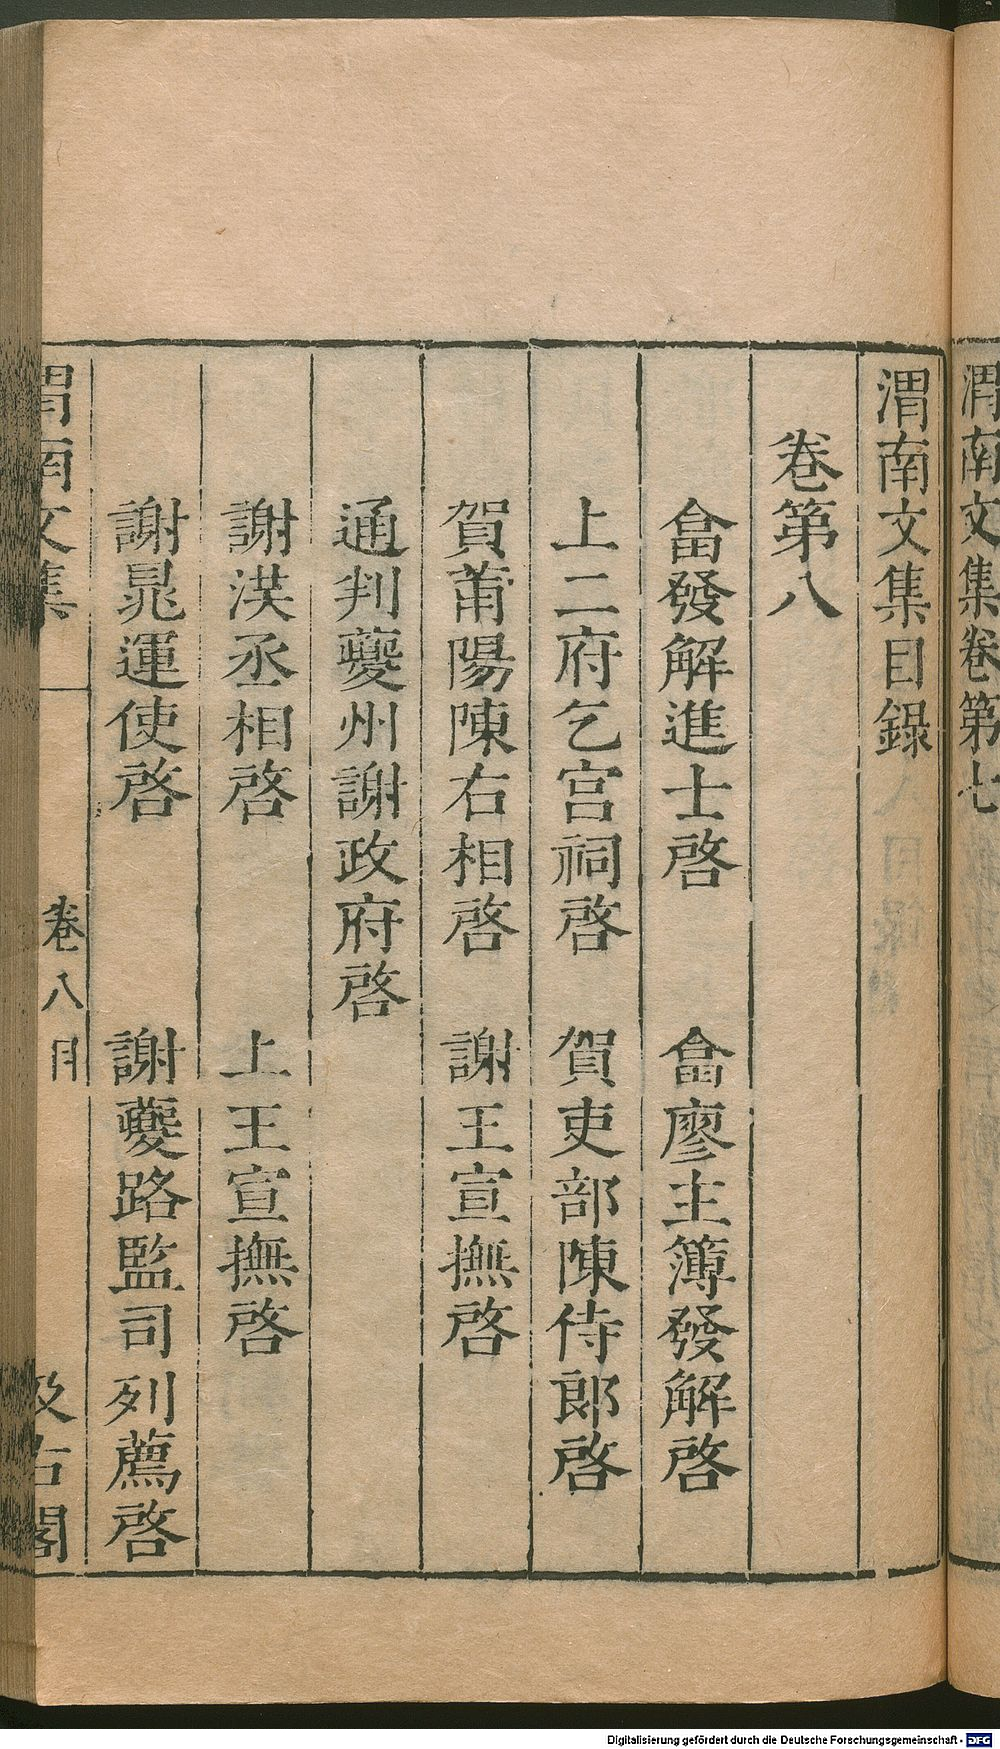 渭南文集卷第七
渭南文集目錄
卷第八
畣發解進士啓　畣廖主簿發解啓
上二府乞宮祠啓　賀吏部陳侍郎啓
賀莆陽陳右相啓　謝王宣撫啓
通判夔州謝政府啓
謝洪丞相啓　上王宣撫啓
謝晁運使啓　謝夔路監司列薦啓
渭南文集　卷八目　汲古閣
Digitalisierung gefördert durch die Deutsche Forschungsgemeinschaft - DFG